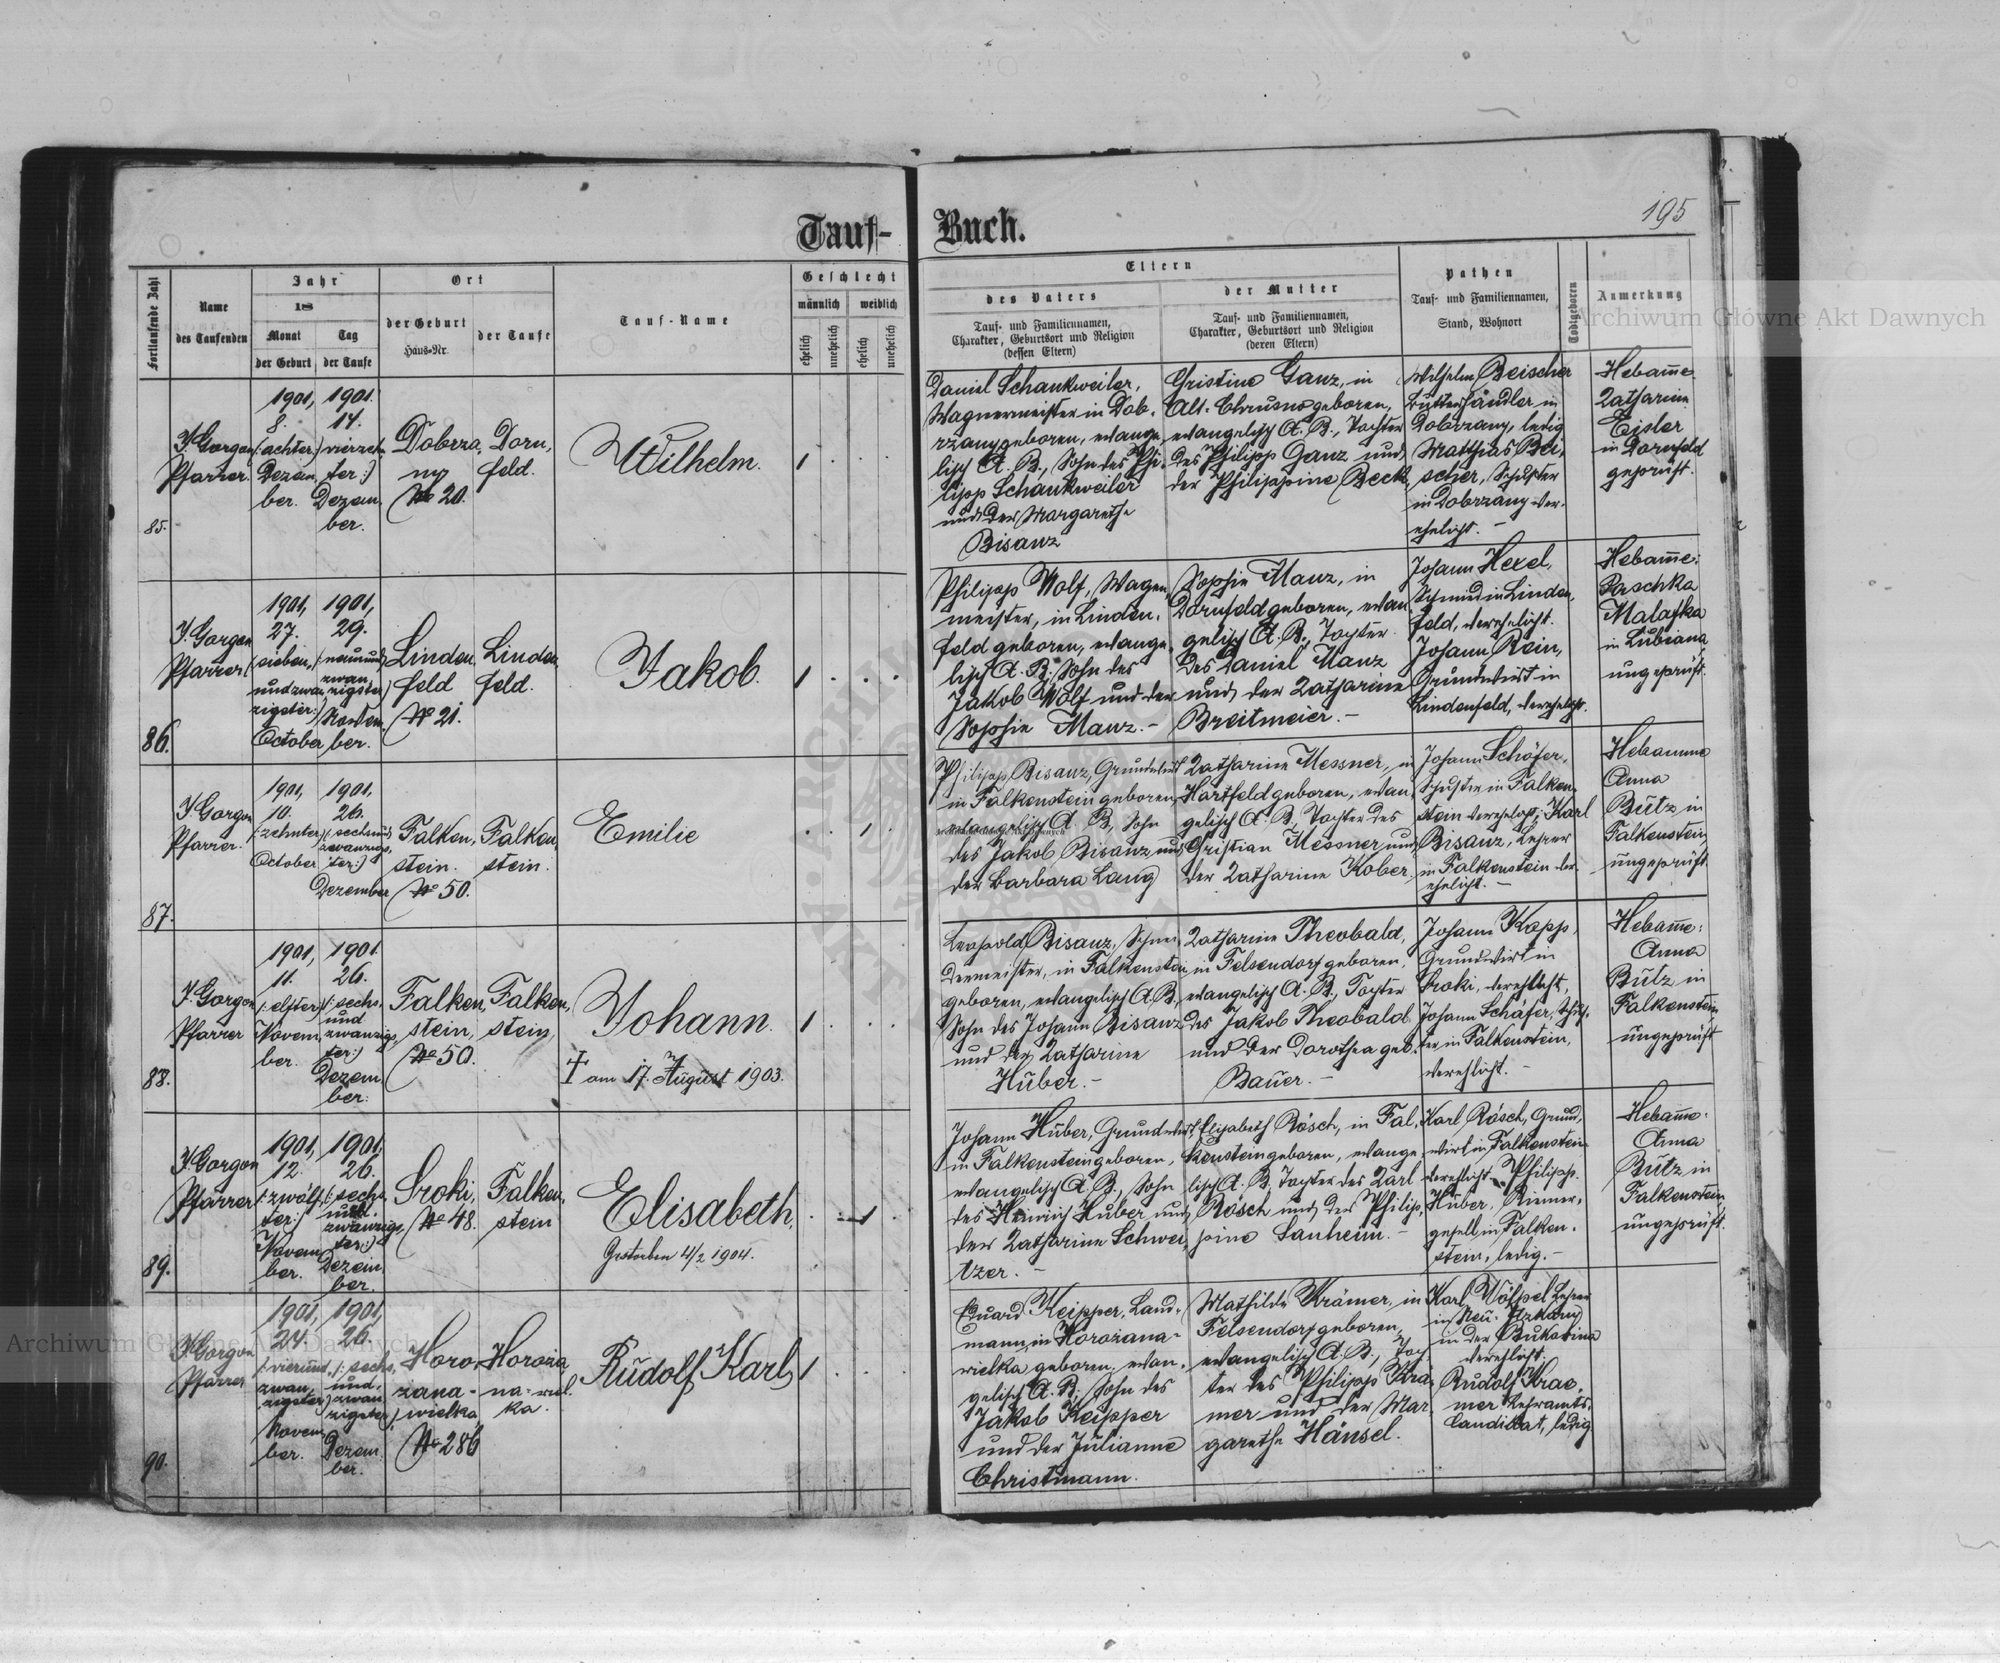 195
Tauf-Buch.
Fortlaufende Zahl
Name
des Taufenden
Jahr
18
Monat
der Geburt
Tag
der Taufe
Ort
der Geburt
Haus-Nr.
der Taufe
Tauf-Name
Geschlecht
männlich
weiblich
ehelich
unehelich
ehelich
unehelich
Eltern
des Vaters
Tauf- und Familiennamen,
Charakter, Geburtsort und Religion
(dessen Eltern)
der Mutter
Tauf- und Familiennamen,
Charakter, Geburtsort und Religion
(deren Eltern)
Pathen
Tauf- und Familiennamen,
Stand, Wohnort
Todtgeboren
Anmerkung
85.
J. Gorgon
Pfarrer.
1901,
8.
(achter)
Dezem,
ber.
1901.
14.
vierzehn
ter:)
Dezem,
ber.
Dobrza,
ny
No 20.
Dorn,
feld.
Wilhelm.
1
Daniel Schankweiler,
Wagnermeister in Dob,
rzany geboren, evange,
lisch A. B., Sohn des Phi,
lipp Schankweiler
und der Margarethe
Bisanz
Christine Ganz, in
Alt-Chrusno geboren,
evangelisch A. B., Tochter
des Philipp Ganz und
der Philippine Beck,
Wilhelm Beischer
Butterhändler in
Dobrzany, ledig
Matthias Bei,
scher, Schuster
in Dobrzany ver-
ehelicht. –
Hebamme
Katharina
Eisler
in Dornfeld
geprüft.
86.
J. Gorgon
Pfarrer
1901,
27.
(sieben,
undzwan
zigster:)
October
1901,
29.
(neunund
zwan
zigster)
Novem,
ber.
Linden
feld
No 21.
Linden
feld.
Jakob.
1
Philipp Wolf, Wagen,
meister, in Linden,
feld geboren, evange,
lisch A. B., Sohn des
Jakob Wolf und der
Sophie Manz. –
Sophie Manz, in
Dornfeld geboren, evan
gelisch A. B., Tochter
des Daniel Manz
und der Katharine
Breitmeier. –
Johann Hexel,
Schmied in Linden,
feld, verehelicht.
Johann Rein,
Grundwirt in
Lindenfeld, verehelicht.
Hebamme:
Paschka
Malafka
in Lubiana,
ungeprüft.
87.
J. Gorgon
Pfarrer.
1901,
10.
(zehnter)
October
1901,
26.
(sechsund
zwanzigs,
ter:)
Dezember
Falken,
stein.
No 50.
Falken,
stein.
Emilie
1
Philipp Bisanz, Grundwirt
in Falkenstein geboren,
evangelisch A. B., Sohn
des Jakob Bisanz und
der Barbara Lang
Katharine Messner, in
Hartfeld geboren, evan
gelisch A. B., Tochter des
Christian Messner und
der Katharine Kober
Johann Schäfer,
Schuster in Falken,
stein verehelicht; Karl
Bisanz, Lehrer
in Falkenstein ver
ehelicht. –
Hebamme
Anna
Butz in
Falkenstein,
ungeprüft
88.
J. Gorgon
Pfarrer
1901,
11.
(:elfter)
Novem,
ber.
1901
26.
(:sechs,
und
zwanzigs,
ter:)
Dezem
ber:
Falken,
stein,
No 50.
Falken,
stein,
Johann.
† am 17. August 1903.
1
Leopold Bisanz, Schnei
dermeister, in Falkenstein
geboren, evangelisch A. B.,
Sohn des Johann Bisanz
und der Katharine
Huber. –
Katharine Theobald,
in Felsendorf geboren,
evangelisch A. B., Tochter
des Jakob Theobald
und der Dorothea geb.
Bauer. –
Johann Kopp,
Grundwirt in
Sroki, verehlicht,
Johann Schäfer, Schus,
ter in Falkenstein,
verehlicht. –
Hebamme:
Anna
Butz in
Falkenstein
ungeprüft
89.
J. Gorgon
Pfarrer
1901,
12.
(:zwölf
ter:)
Novem
ber.
1901,
26.
(:sechs,
und
zwanzigs,
ter:)
Dezem
ber.
Sroki,
No 48.
Falken,
stein
Elisabeth,
Gestorben 4/2 1904.
1
Johann Huber, Grundwirt,
in Falkenstein geboren,
evangelisch A. B., Sohn
des Heinrich Huber und
der Katharine Schwei,
tzer. –
Elisabeth Rösch, in Fal,
kenstein geboren, evange
lisch A. B. Tochter des Karl
Rösch und der Philip,
pine Sanheim. –
Karl Rösch, Grund,
wirt in Falkenstein
verehlicht. Philipp
Huber, Riemer,
gesell in Falken,
stein, ledig. –
Hebamme:
Anna
Butz in
Falkenstein
ungeprüft.
90.
J. Gorgon
Pfarrer
1901,
24.
(:vierund,
zwan,
zigster)
Novem
ber.
1901,
26.
(:sechs,
und,
zwan
zigster)
Dezem
ber.
Horo,
zana-
wielka
No 286
Horoża
na-wiel
ka.
Rudolf Karl,
1
Eduard Keipper, Land-
mann, in Horozana-
wielka geboren, evan,
gelisch A. B., Sohn des
Jakob Keipper
und der Julianne
Christmann.
Mathilde Krämer, in
Felsendorf geboren,
evangelisch A. B., Toch
ter des Philipp Krä
mer und der Mar
garethe Hänsel.
Karl Wölfpel Lehrer
in Neu-Itzkany
in der Bukowina
verehlicht.
Rudolf Krae,
mer Lehramts,
Candidat, ledig
Archiwum Główne Akt Dawnych
Archiwum Główne Akt Dawnych